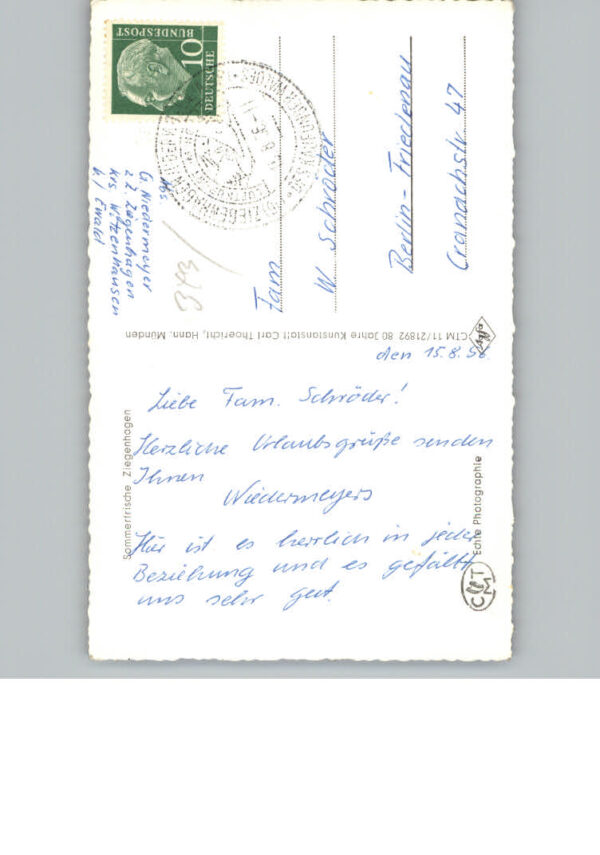 den 15.8.56.
Liebe Fam. Schröder!
Herzliche Urlaubsgrüße senden
Ihnen
Niedermeyers
Hier ist es herrlich in jeder
Beziehung und es gefällt
uns sehr gut.
Sommerfrische Ziegenhagen
Echte Photographie
CTM
CTM 11/21892 80 Jahre Kunstanstalt Carl Thoericht, Hann. Münden
Agfa
Abs.
G. Niedermeyer
z.Z. Ziegenhagen
Krs. Witzenhausen
b/ Ewald
Fam
W. Schröder
Berlin-Friedenau
Cranachstr 47
10
DEUTSCHE
BUNDESPOST
ZIEGENHAGEN